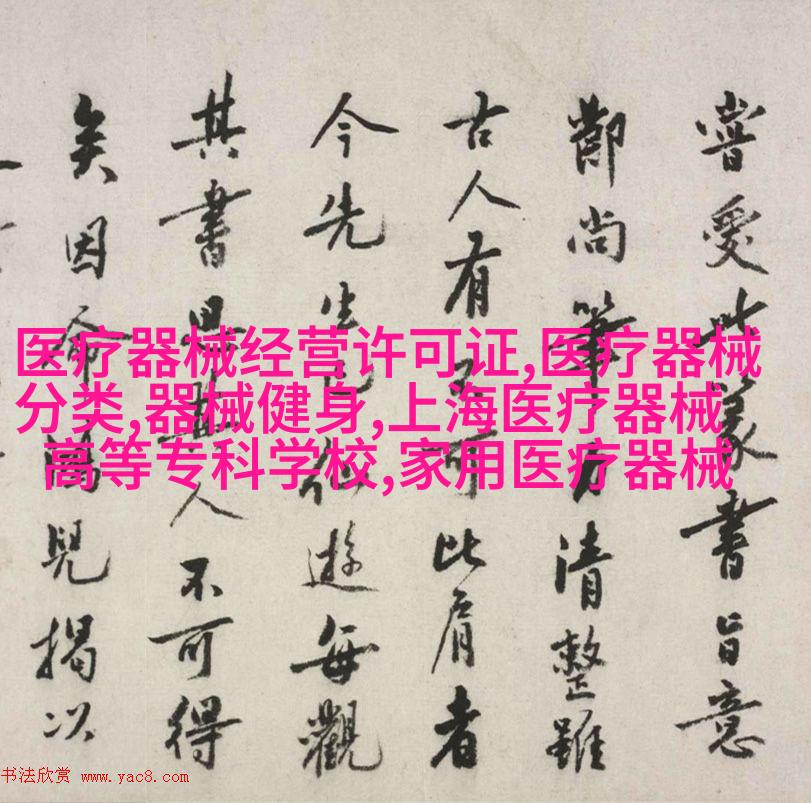 嘗愛此書旨意
尚筆力清整雖
古人有可比肩者
今先生已仙遊每觀
其書思其人不可得
矣因命兒揭以
医疗器械经营许可证,医疗器械
分类,器械健身,上海医疗器械
高等专科学校,家用医疗器械
书法欣赏 www.yac8.com